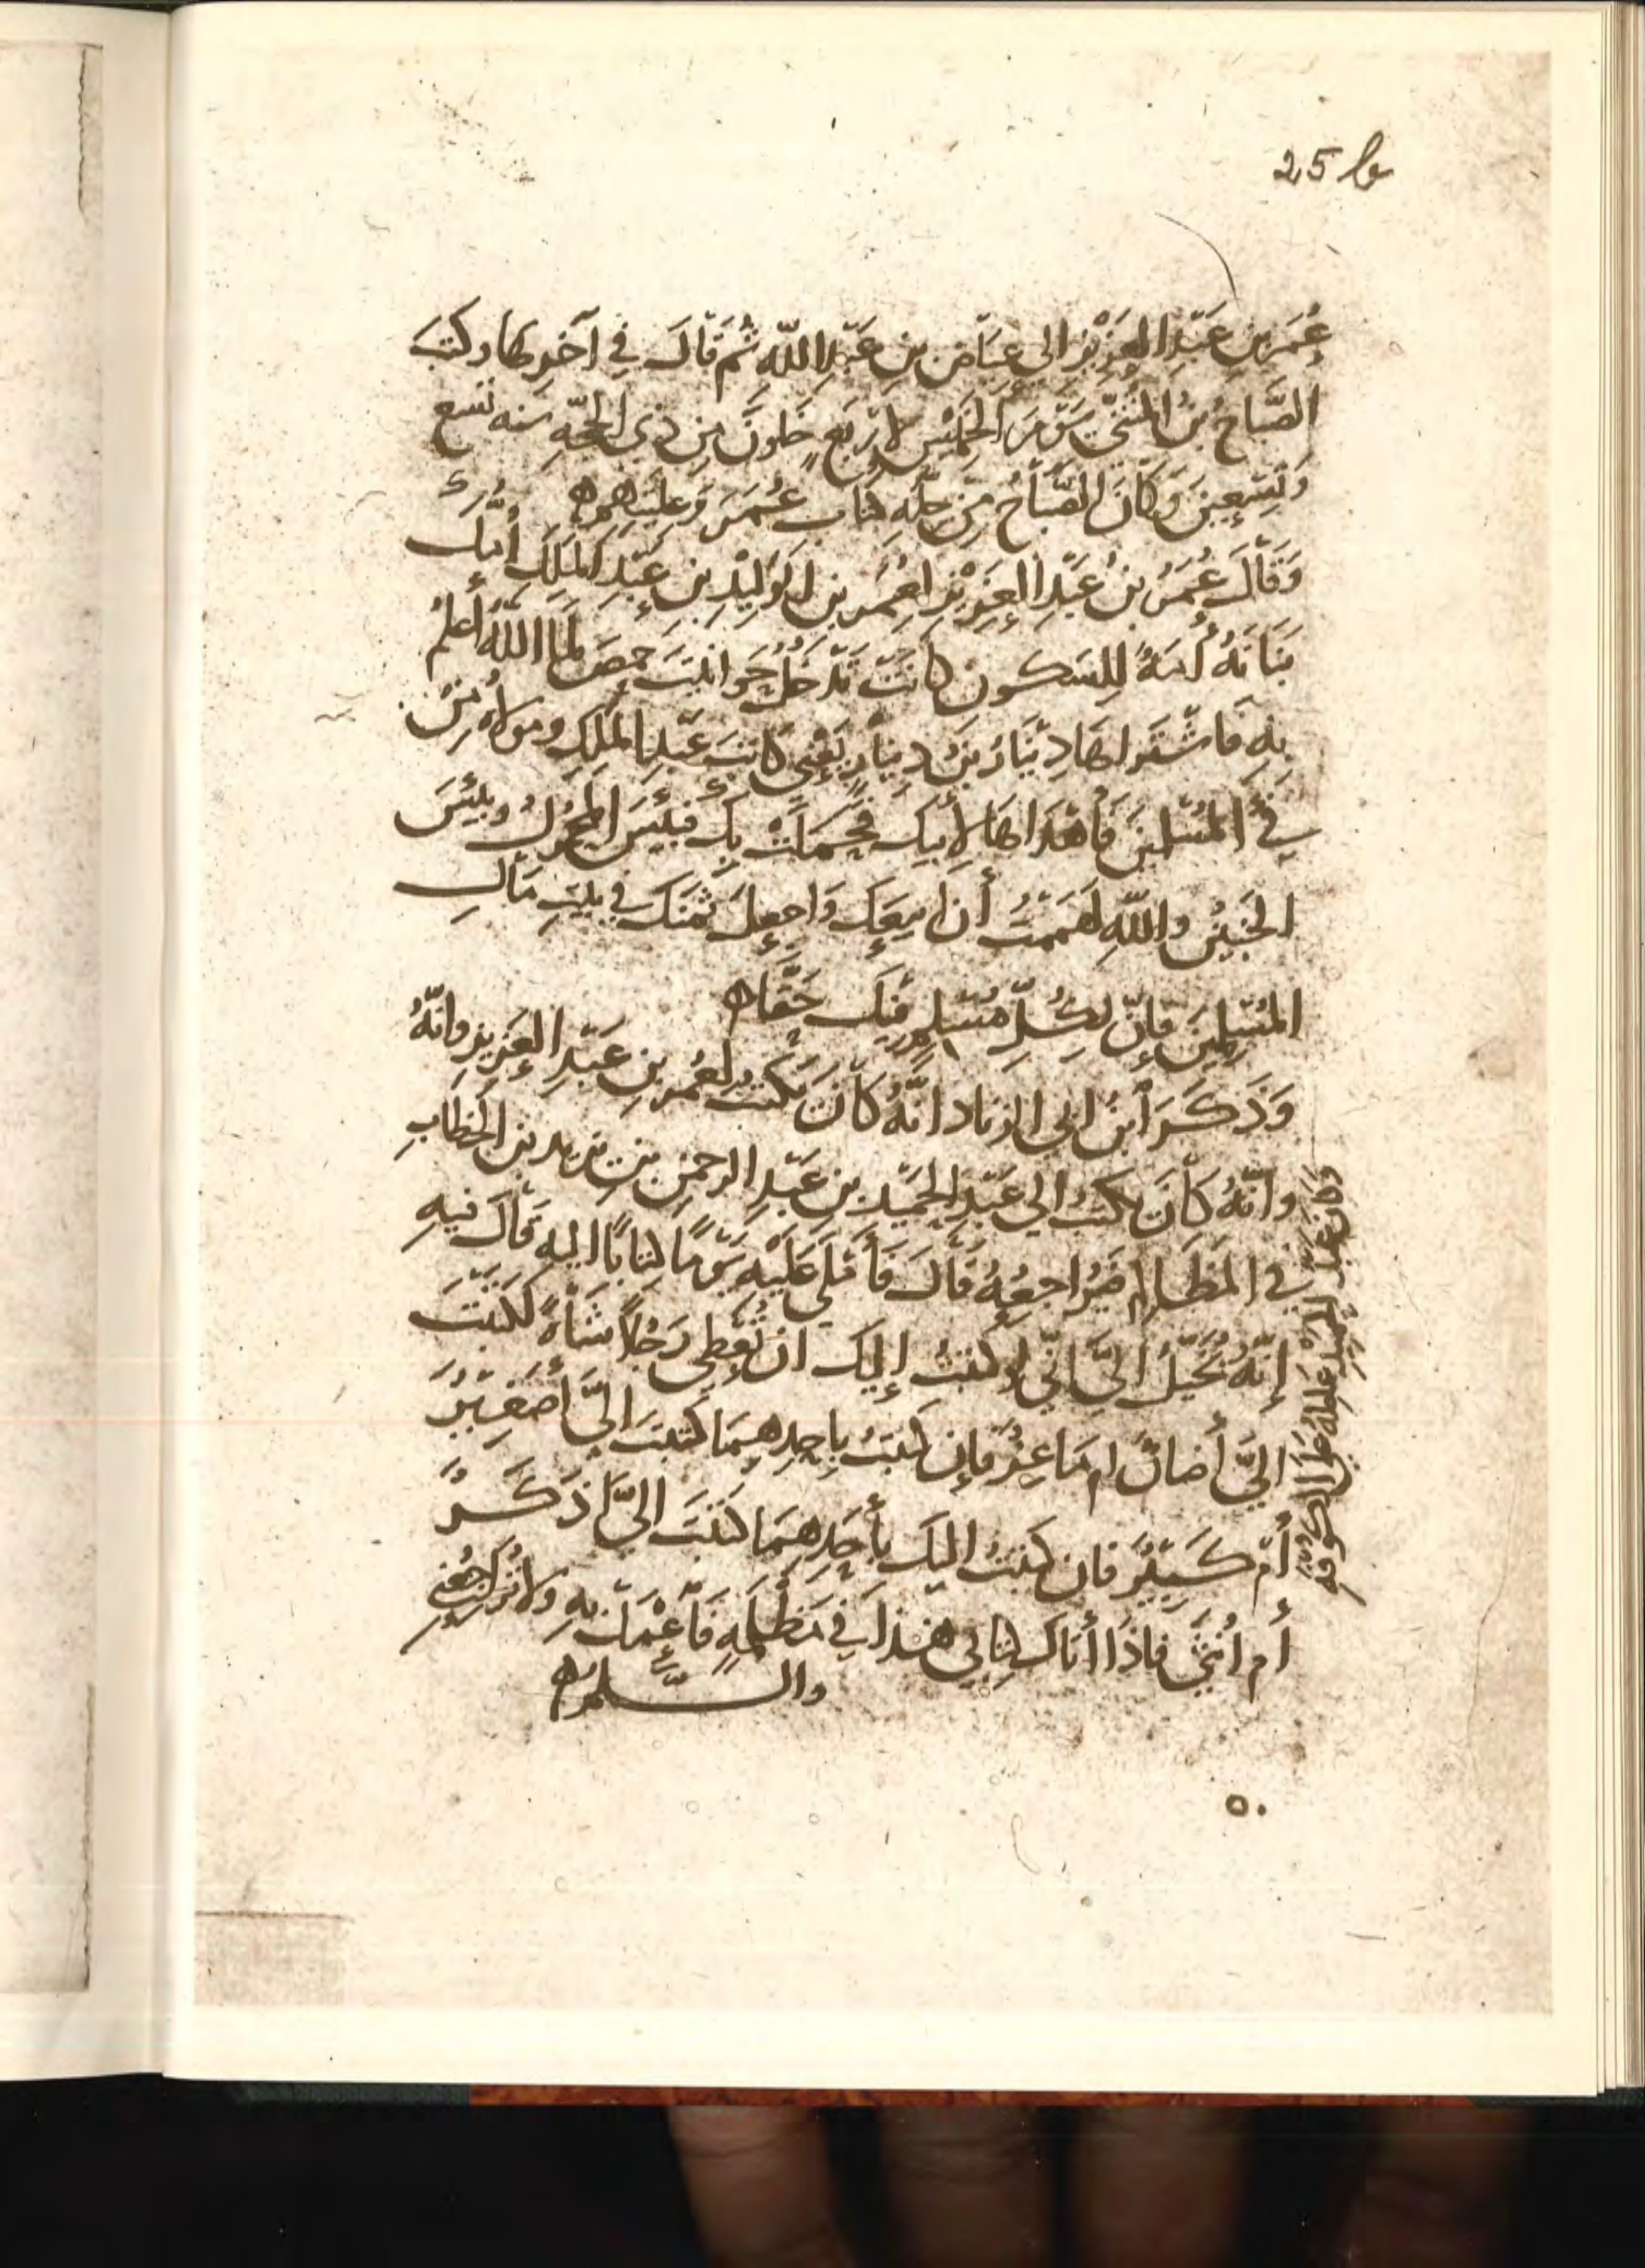 25 b
عُمَرَ بنِ عَبْدِ العَزِيْزِ الى عِيَاضِ بنِ عَبْدِ اللّه ثُم قَالَ فِي آخرِها وكتبَ
الصَّبَاحُ بنُ المُثنَّى يَوْمَ الخَمِيْسِ لِارْبَعٍ خَلوْنَ مِن ذِي الحجّهِ سنه تسع
وَتسْعِينَ وَكَانَ الصَّبَاحُ مِن جِلَّهِ كتاب عُمَرَ وَعِلْيَتِهِم ه
وَقَالَ عُمَرُ بنُ عَبْدِ العَزِيْزِ لعُمَر بن الوَلِيْدِ بنِ عَبْدِ المَلِكِ أُمُّكَ
بَنَانَهُ أمَهٌ لِلسَكُون كانَتْ تَدْخُلُ حَوانيتَ حِمصَ لمَا اللّهُ أَعْلمُ
بِهِ فَاشْتَراها دِيْنَارُ بنُ دِيْنَارٍ يَعْنِي كاتبَ عَبْدِ المَلِكِ ومولاه مِنْ
فِئِ المُسْلِمِيْنَ فَأَهْدَاهَا لِأَبِيكَ فَحَمَلتْ بِكَ فبئسَ المحْمولُ وبئسَ
الجَنِيْنُ واللّهِ لهَمَمْتُ أن ابيعَكَ وَاجعلَ ثمنَكَ في بيتِ مَالِ
المُسْلِمِيْنَ فإنّ لِكُلّ مُسْلِمٍ فيكَ حَقًّا ه
وَذَكَرَ ابنُ ابي الزناد انّهُ كَانَ يكتب لعُمرَ بنِ عَبْدِ العَزِيزِ وانّهُ
وانّهُ كَانَ يكتبُ الى عَبْدِ الحَمِيْدِ بنِ عَبْدِ الرحمنِ بنِ زيد بنِ الخطابِ
فِي المَظَالِمِ فيُرَاجعُهُ قَالَ فَأَمْلَى عَلَيْهِ يَوْمًا كتابًا اليه قَالَ فيهِ
إنّهُ يُخَيّلُ اليَّ انّي لو كتبتُ إليكَ ان تُعْطِي رَجُلاً شَاهً لكتبْتَ
اليَّ أضانٌ ام مَاعِزٌ فإن كتبتُ بِاحدِهِمَا كتبتَ اليَّ أصَغِيْرٌ
أم كَبِيْرٌ فان كتبتُ اليكَ بأحَدِهِمَا كتبتَ اليَّ اذكَرٌ
أم انُثى فاذَا أتَاكَ كتابي هذا في مَظْلِمهٍ فَاعْمَلْ بهِ ولا تُراجعْنِي
والسَّلام ه
وَكَانَ عَبْدُ الحَمِيْدِ عَامِلهُ عَلَى الكُوْفَهِ
٥٠